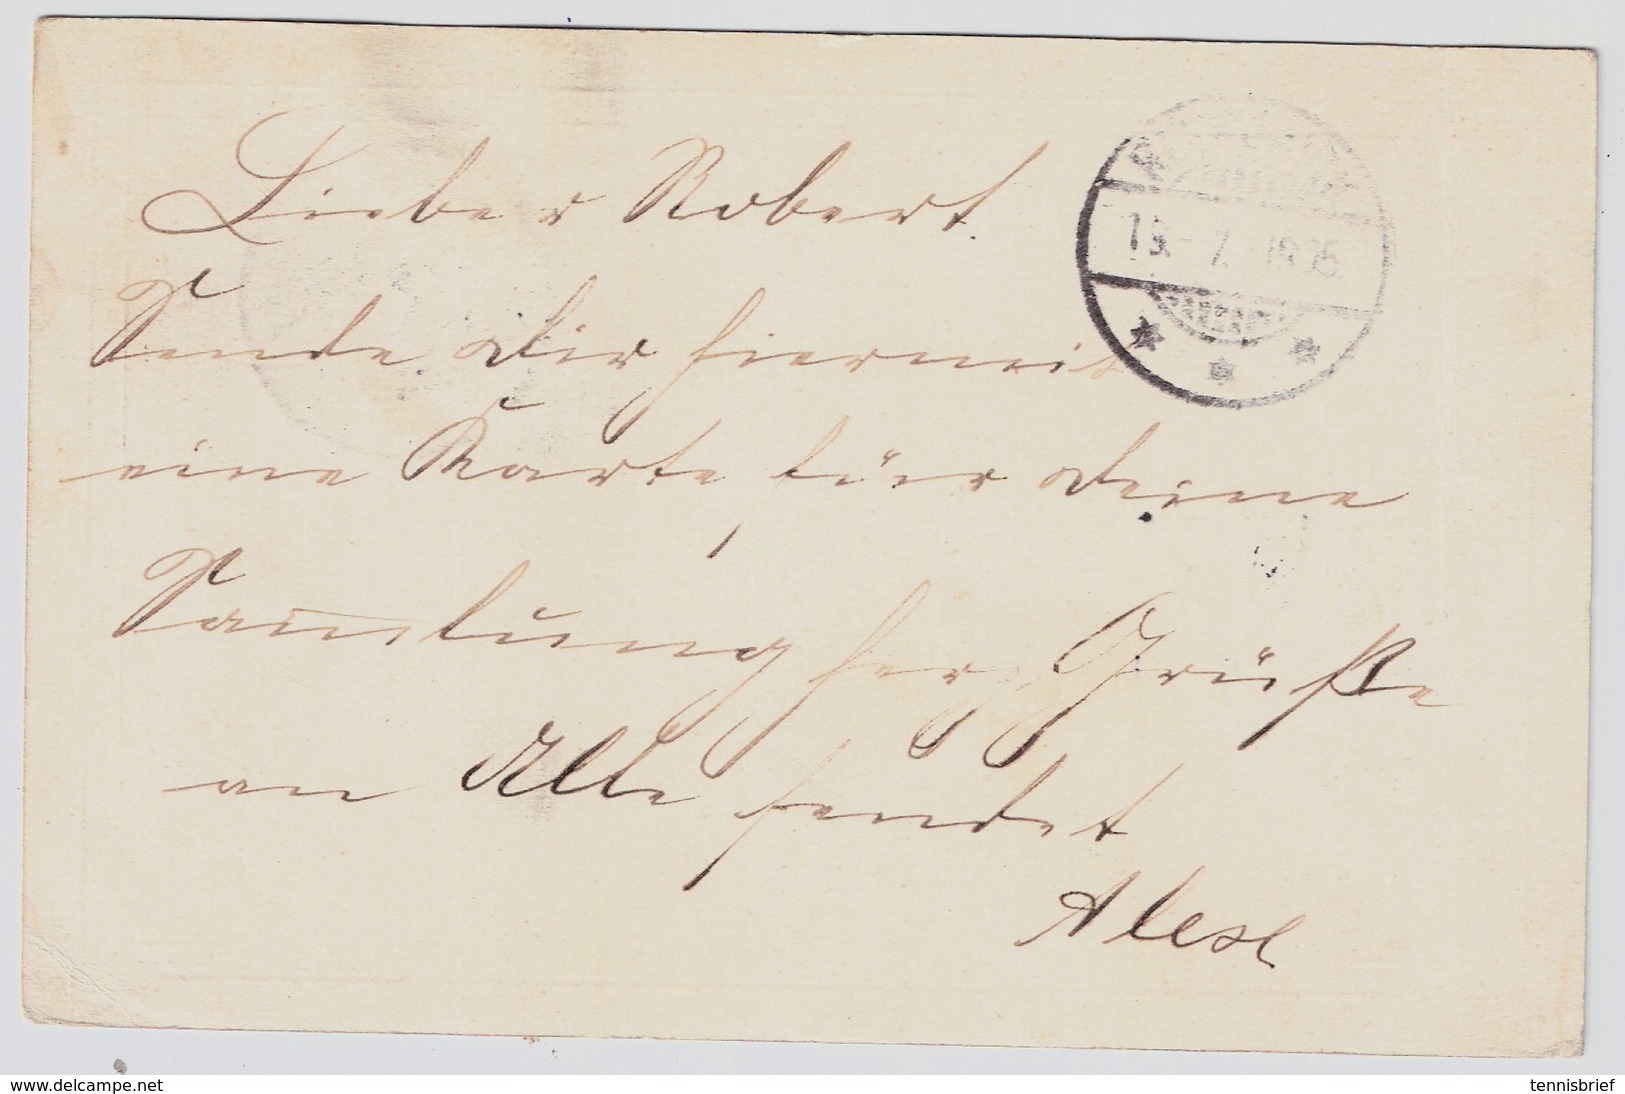 Lieber Robert.
Sende Dir hiermit
eine Karte, für Deine
Sammlung herz. Grüße
an Alle sendet
Alex
7. 1905.
www.delcampe.net
tennisbrief